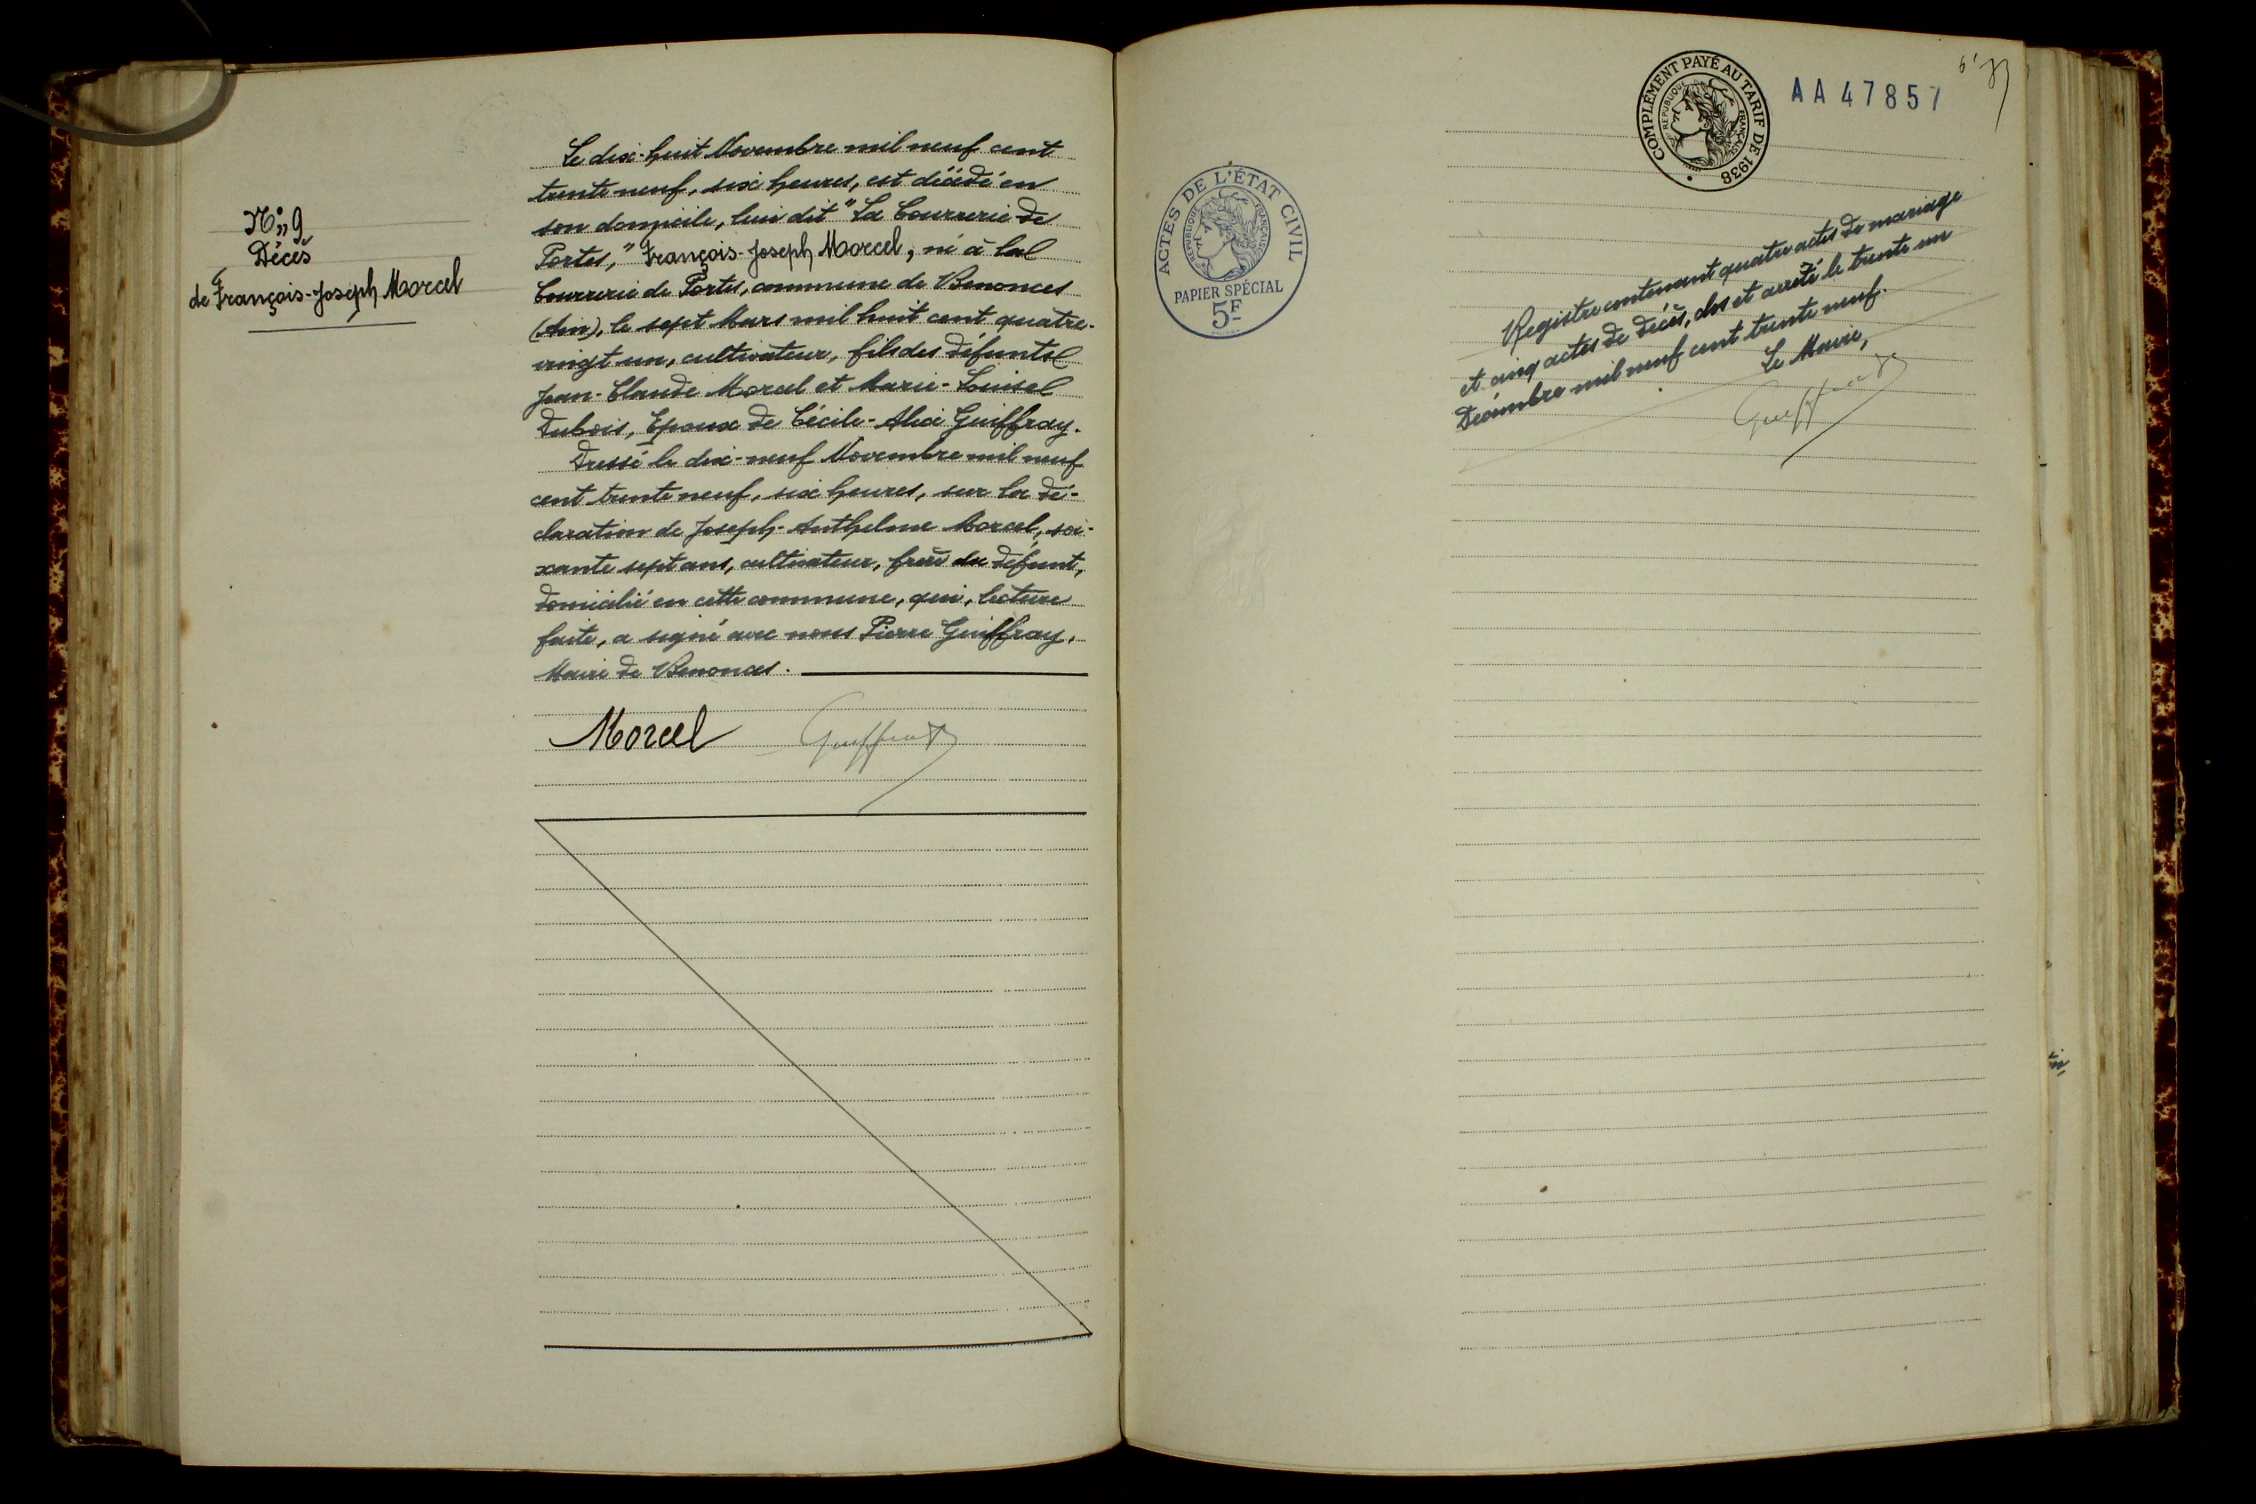 N° 9
Décès
de François-Joseph Morcel
Le dix-huit Novembre mil neuf cent
trente neuf, six heures, est décédé en
son domicile, lieu dit "La Courrerie de
Portes," François-Joseph Morcel, né à la
Courrerie de Portes, commune de Benonces
(Ain), le sept Mars mil huit cent quatre-
vingt un, cultivateur, fils des défunts
Jean-Claude Morcel et Marie-Louise
Dubois, Epoux de Cécile-Alice Guiffray.
Dressé le dix-neuf Novembre mil neuf
cent trente neuf, six heures, sur la dé-
claration de Joseph-Anthelme Morcel, soi-
xante sept ans, cultivateur, frère du défunt,
domicilié en cette commune, qui, lecture
faite, a signé avec nous Pierre Guiffray,
Maire de Benonces.
Morcel Guiffray
COMPLÉMENT PAYÉ AU TARIF DE 1938
RÉPUBLIQUE FRANÇAISE
AA 47857
ACTES DE L'ÉTAT CIVIL
RÉPUBLIQUE FRANÇAISE
PAPIER SPÉCIAL
5F
Registre contenant quatre actes de mariage
et cinq actes de décès, clos et arrêté le trente un
Décembre mil neuf cent trente neuf.
Le Maire,
Guiffray